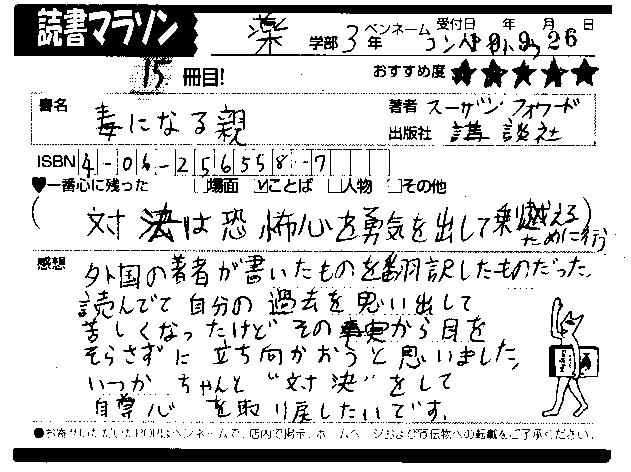 読書マラソン
薬 学部 3年 ペンネーム 受付日 年 月 日
9 26
15 冊目! おすすめ度 ★★★★★
書名 毒になる親
著者 スーザン フォワード
出版社 講談社
ISBN 4-06-256558-7
♥一番心に残った □場面 ☑ことば □人物 □その他
(対決は恐怖心を勇気を出して乗り越えるために行)
感想 外国の著者が書いたものを翻訳したものだった。
読んでて自分の過去を思い出して
苦しくなったけどその事実から目を
そらさずに立ち向かおうと思いました。
いつかちゃんと"対決"をして
自尊心を取り戻したいです。
●お寄せいただいたPOPはペンネームで、店内で掲示、ホームページおよび宣伝物への転載をご了承ください。